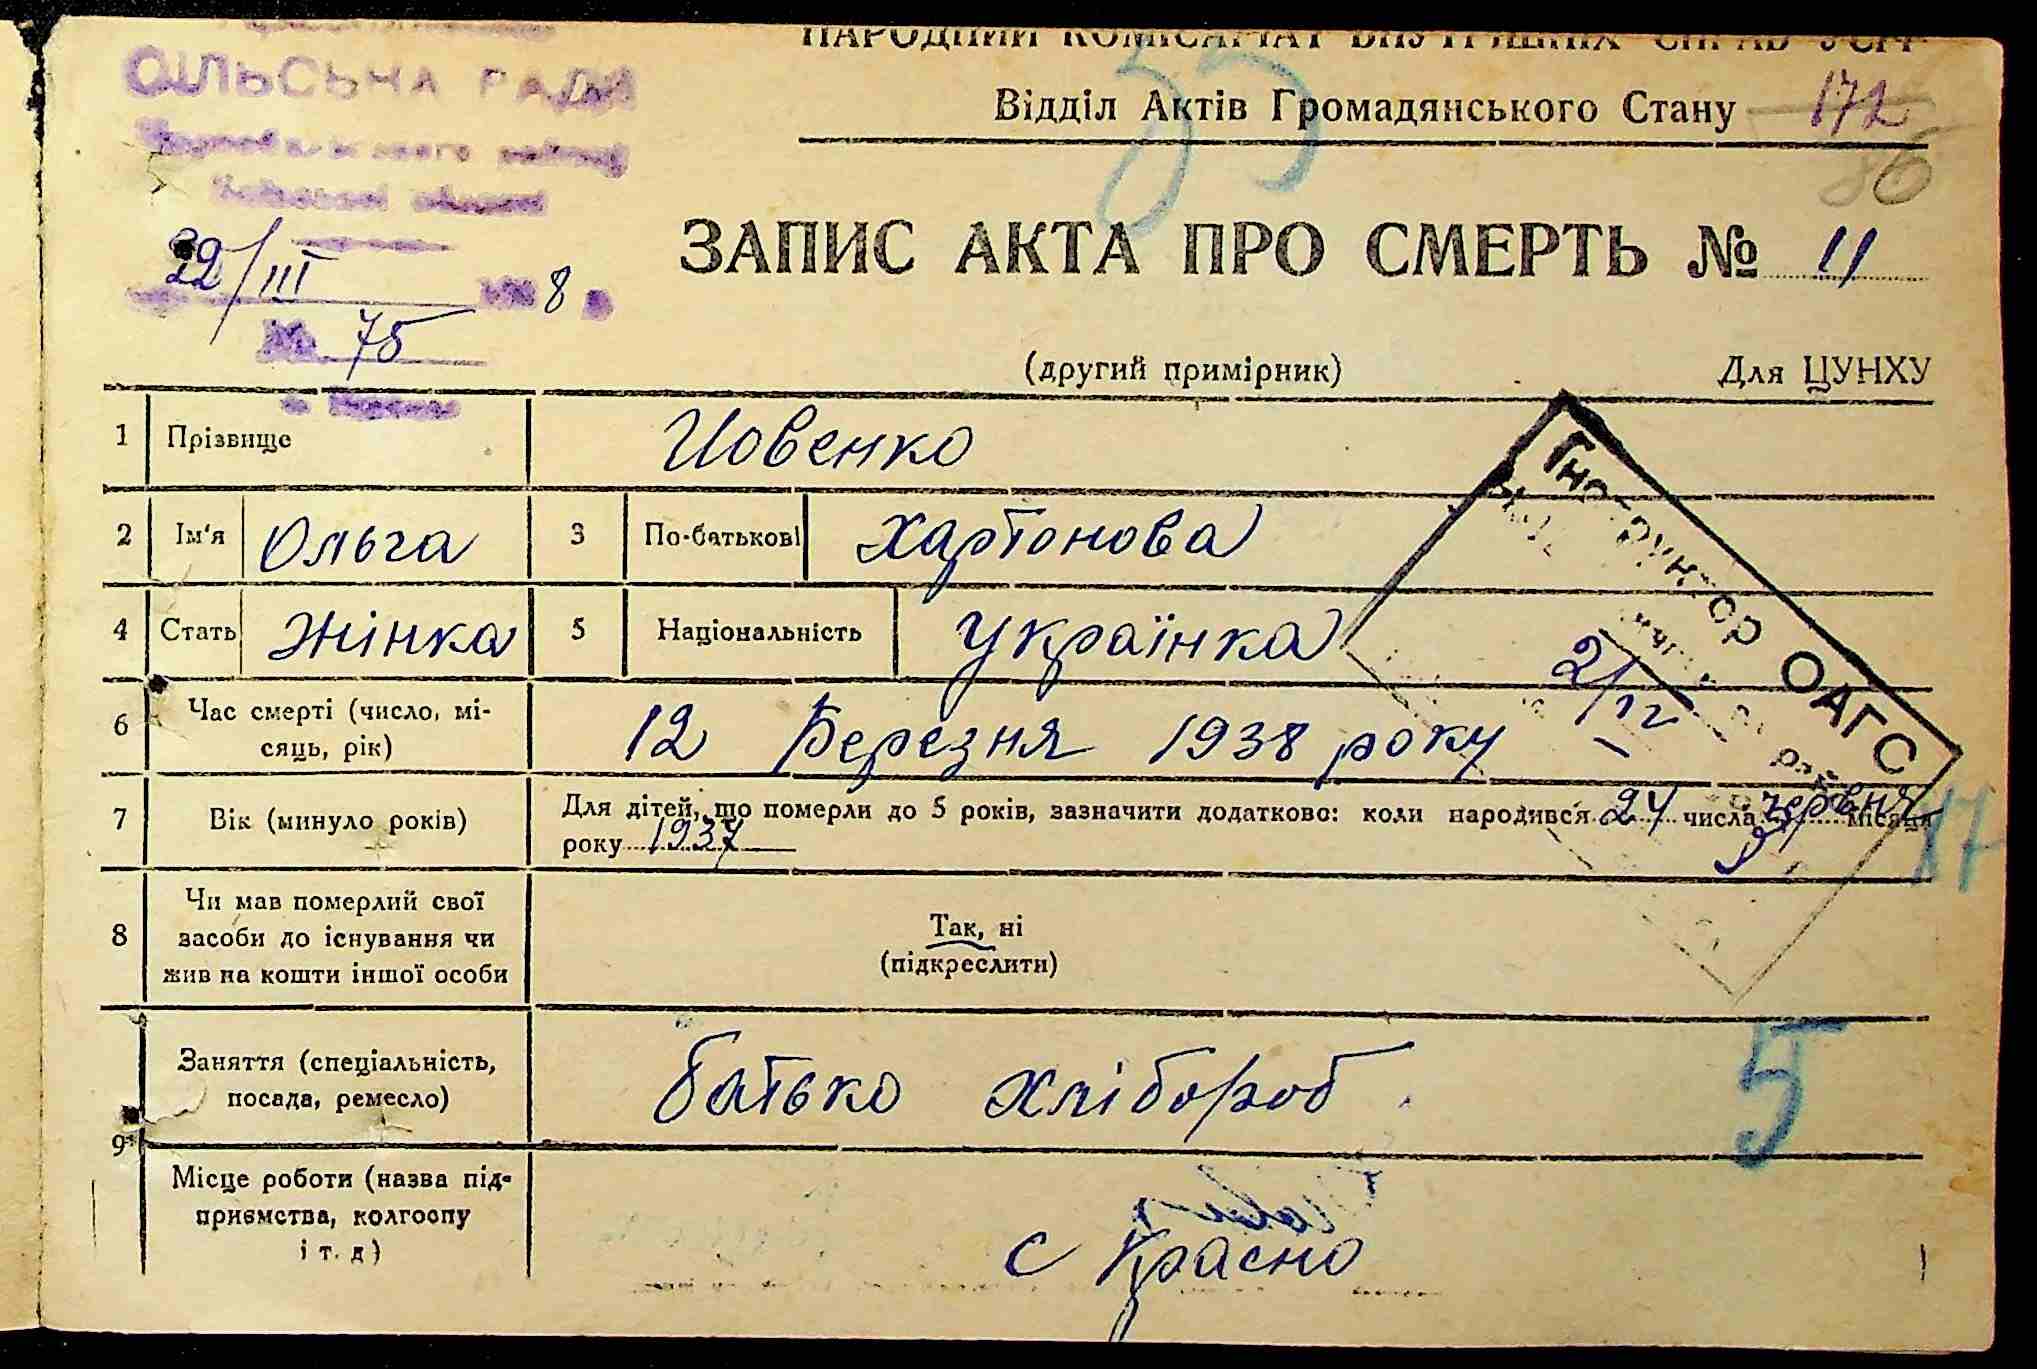 НАРОДНИЙ КОМІСАРІАТ ВНУТРІШНІХ СПРАВ УСРР
СІЛЬСЬКА РАДА
Відділ Актів Громадянського Стану 172
86
ЗАПИС АКТА ПРО СМЕРТЬ № 11
22/III 8
№ 75
(другий примірник) Для ЦУНХУ
1 Прізвище Йовенко
2 Ім'я Ольга 3 По-батькові Хартонова
4 Стать Жінка 5 Національність Українка
Інструктор ОАГС
2/IV
6 Час смерті (число, мі-
сяць, рік) 12 Березня 1938 року
7 Вік (минуло років) Для дітей, що померли до 5 років, зазначити додатково: коли народився 24 числа червня місяця
року 1937
8 Чи мав померлий свої
засоби до існування чи
жив на кошти іншої особи
Так, ні
(підкреслити)
9 Заняття (спеціальність,
посада, ремесло) батько хлібороб.
5
Місце роботи (назва під-
приємства, колгоспу
і т. д)
с Красно